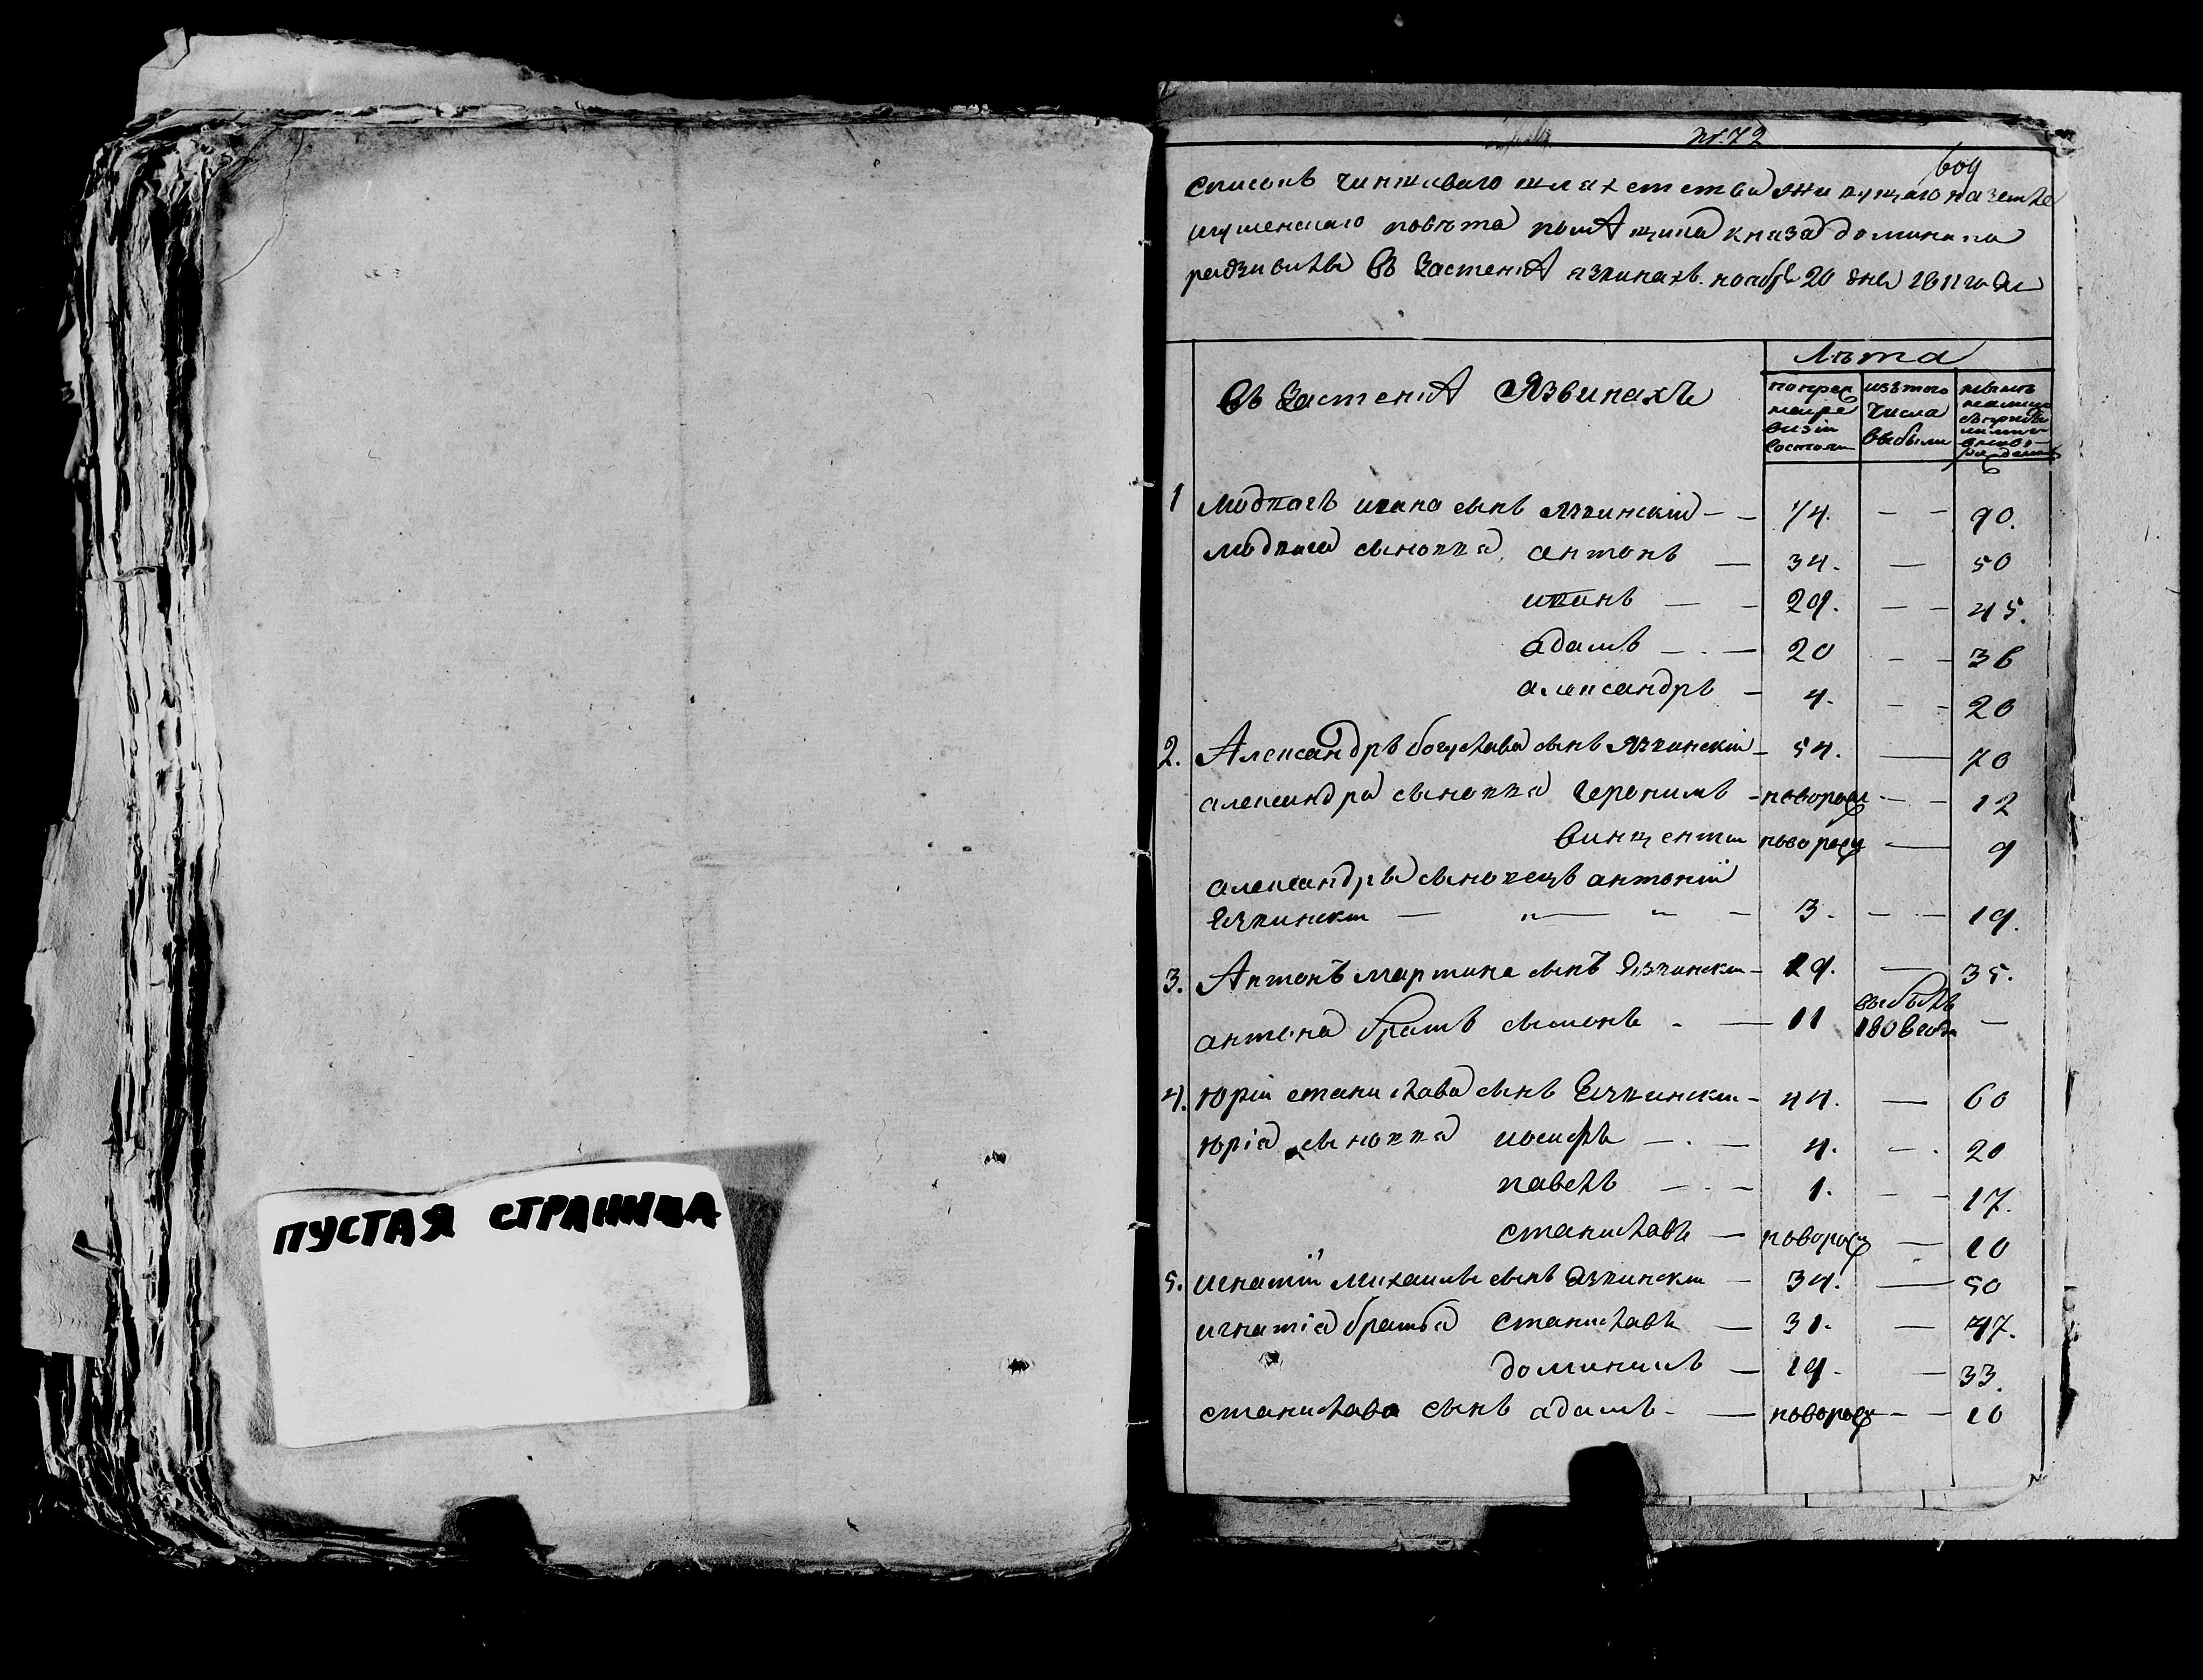 ПУСТАЯ СТРАНИЦА
№. 72
609
Списокъ чиншеваго шляхетства живущаго на земле
игуменскаго повѣта помѣщика князя доминика
радзивила Въ Застенкѣ язвинахъ. ноября 20 дня 1811 года
Въ Застенкѣ Язвинахъ
Лѣта
по пред
шей ре
визіи
состояло
изъ того
числа
выбыли
1 ивана сынъ Язвинскій — — 74. — — 90.
сыновья, антонъ — 34. — 50
иванъ — — 29. — — 45.
адамъ — . — 20 — — 36
александръ — 4. — — 20
2. Александръ богуслава сынъ Язвинскій — 54. — 70
александра сыновья Іеронимъ — новорож — — 12
винцентій новорож — 9
александра сыновецъ антоній
Язвинскій — " — " — 3. — — 19.
3. Антонъ мартина сынъ Язвинскій — 19. — 35.
антона братъ сымонъ - — 11 выбылъ 1808 года —
4. Юрій станислава сынъ Язвинскій — 44. — 60
юрія сыновья иосифъ — . — 4. — . 20
павелъ — . — 1. — — 17.
станиславъ — новорож — 10
5. игнатій михаила сынъ Язвинскій — 34. — 50
игнатія братья Станиславъ — 31. — 47.
доминикъ — 19. — 33.
станислава сынъ адамъ - — новорож — — 10